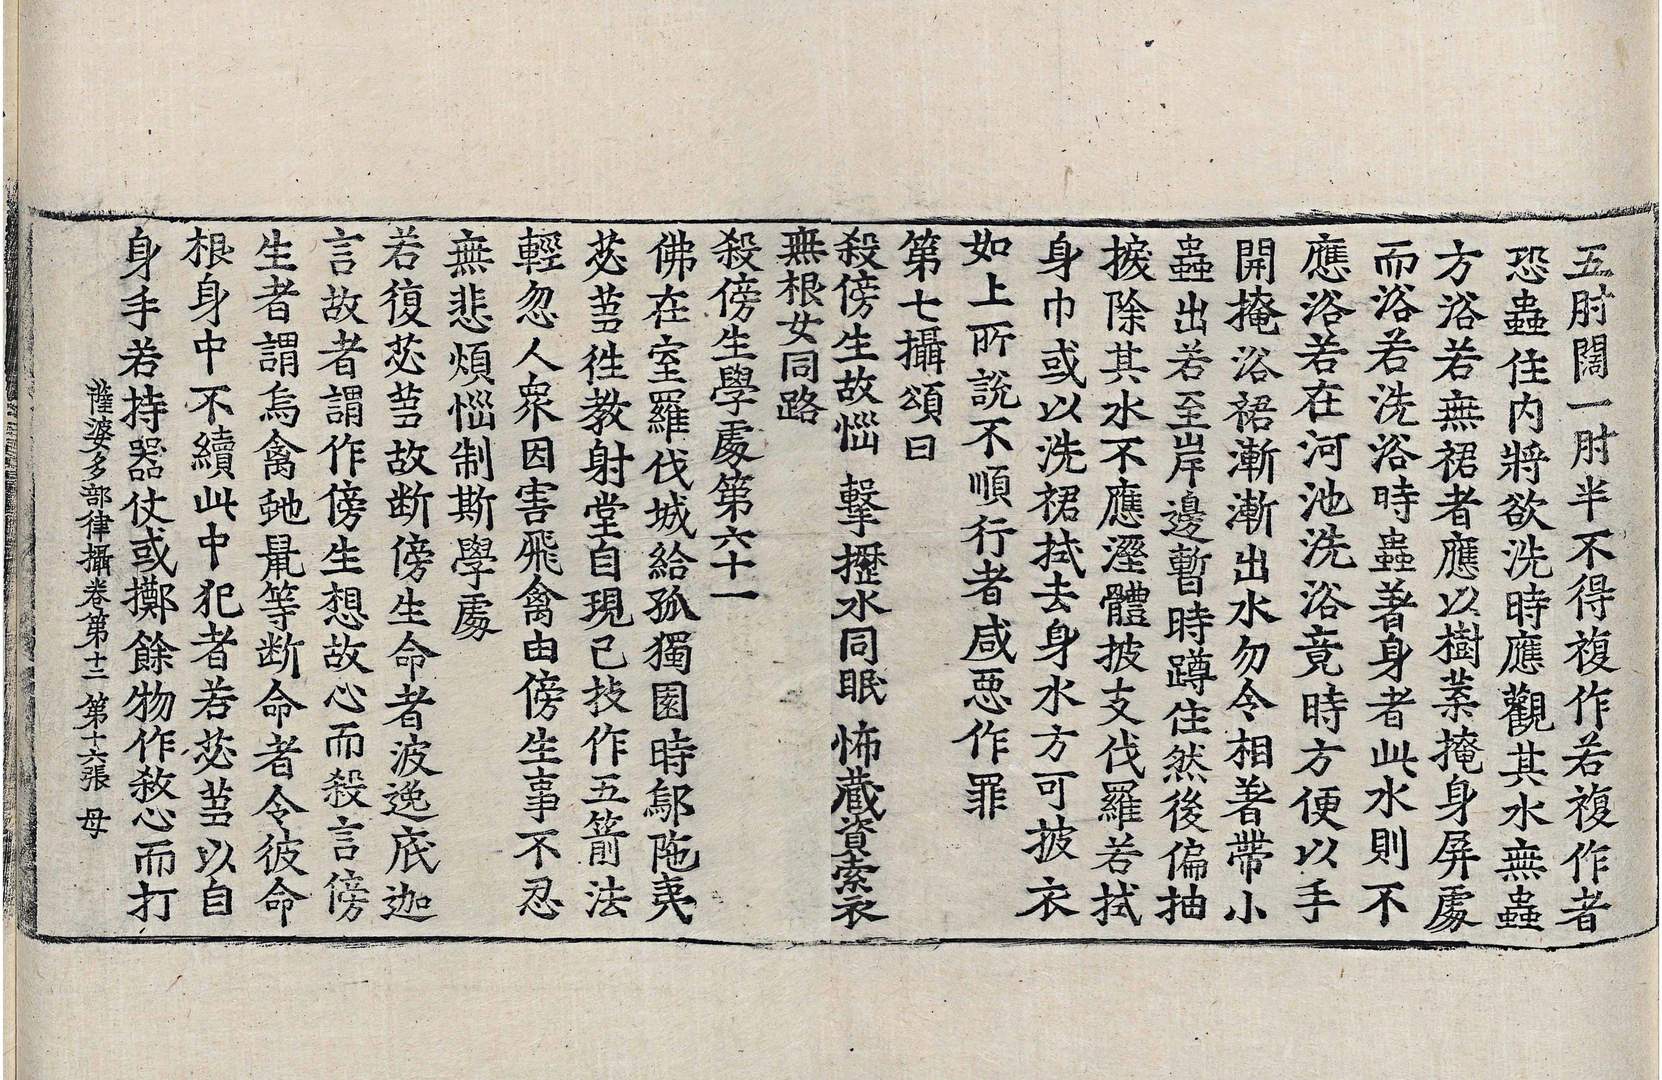 五肘闊一肘半不得複作若複作者
恐蟲住內將欲洗時應觀其水無蟲
方浴若無裙者應以樹葉掩身屏處
而浴若洗浴時蟲著身者此水則不
應浴若在河池洗浴竟時方便以手
開掩浴裙漸漸出水勿令相著帶小
蟲出若至岸邊暫時蹲住然後偏抽
捩除其水不應溼體披支伐羅若拭
身巾或以洗裙拭去身水方可披衣
如上所說不順行者咸惡作罪
第七攝頌曰
殺傍生故惱　擊攊水同眠　怖藏資索衣
無根女同路
殺傍生學處第六十一
佛在室羅伐城給孤獨園時鄔陁夷
苾芻徃教射堂自現己技作五箭法
輕忽人衆因害飛禽由傍生事不忍
無悲煩惱制斯學處
若復苾芻故断傍生命者波逸底迦
言故者謂作傍生想故心而殺言傍
生者謂烏禽虵鼠等断命者令彼命
根身中不續此中犯者若苾芻以自
身手若持器仗或擲餘物作殺心而打
薩婆多部律攝卷第十二　第十六張　母